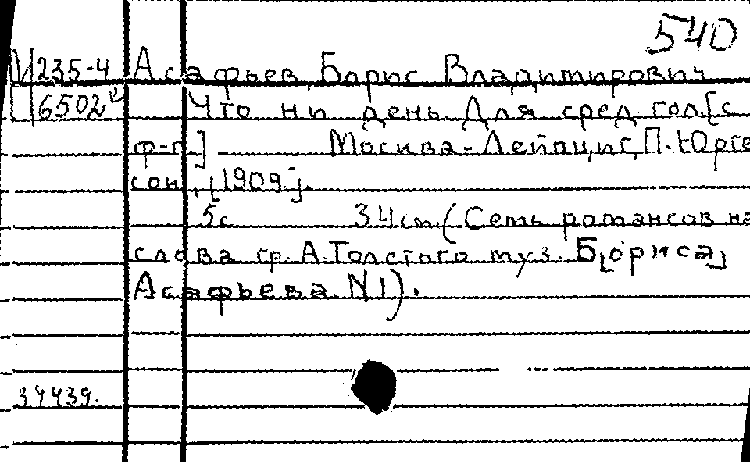 540
М 235-4 Асафьев, Борис Владимирович
6502 Что ни день. Для сред. гол. [с
ф-п.] Москва-Лейпциг, П. Юрген
сон, [1909].
5с 34 см. (Семь романсов на
слова гр. А. Толстого муз. Б[ориса]
Асафьева. N 1).
34439.